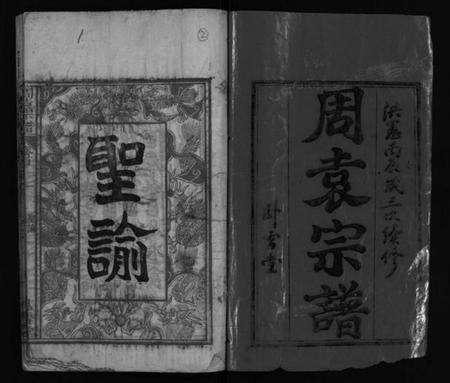 洪憲丙辰歲三次續修
周袁宗譜
卧雪堂
聖諭
②
1